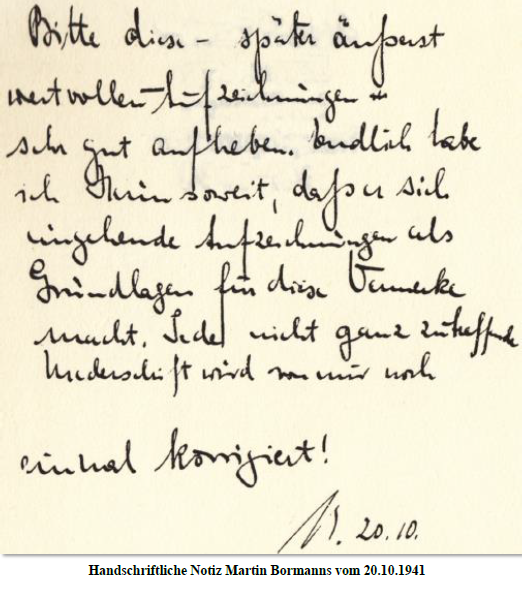 Bitte diese – später äußerst
wertvollen – Aufzeichnungen
sehr gut aufheben. Endlich habe
ich Heim soweit, daß er sich
eingehende Aufzeichnungen als
Grundlagen für diese Vermerke
macht. Jede nicht ganz zutreffende
Niederschrift wird von mir noch
einmal korrigiert!
B. 20.10.
Handschriftliche Notiz Martin Bormanns vom 20.10.1941